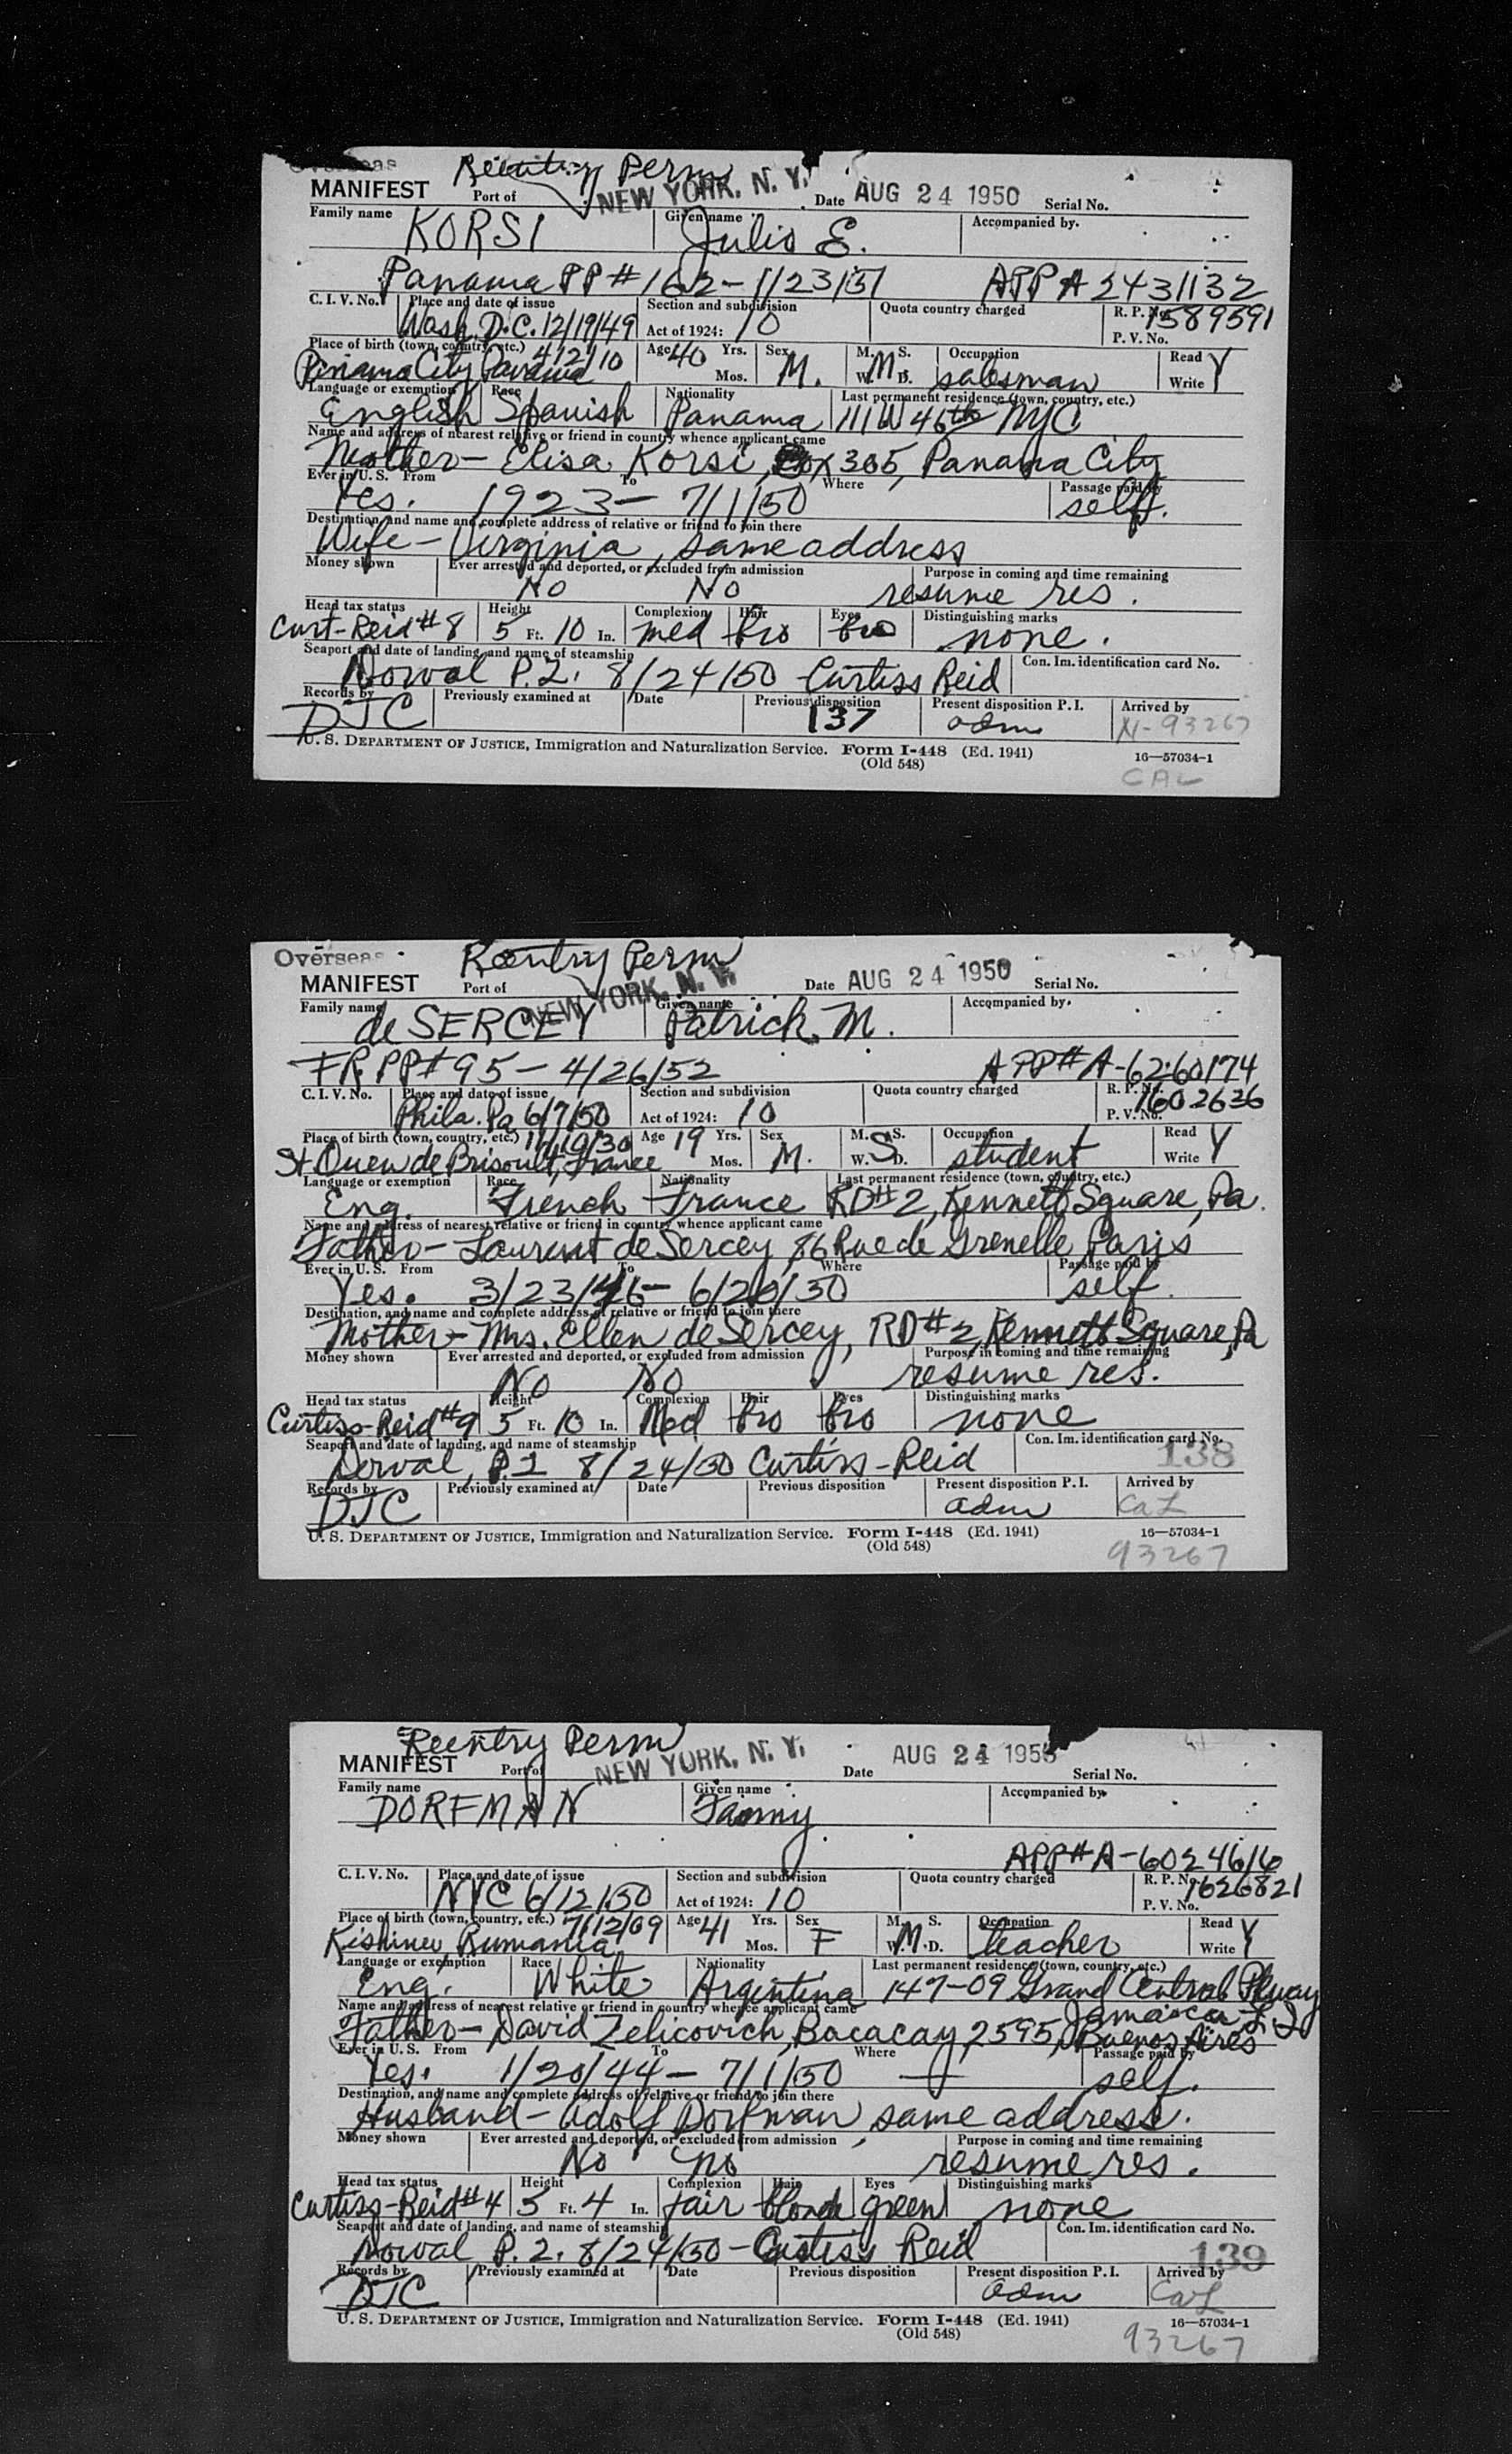 Overseas Reentry Perm
MANIFEST Port of NEW YORK, N. Y. Date AUG 24 1950 Serial No.
Family name Given name Accompanied by
KORSI Julio E.
Panama PP # 162 - 1/23/51 APP A 2431132
C. I. V. No. Place and date of issue Section and subdivision Quota country charged R. P. No.
Wash. D.C. 12/19/49 Act of 1924: 10 1589591
P. V. No.
Place of birth (town, country, etc.) 4/2/10 Age 40 Yrs. Sex M. S. Occupation Read Y
Panama City Panama Mos. M. M W. D. salesman Write
Language or exemption Race Nationality Last permanent residence (town, country, etc.)
English Spanish Panama 111 W 46th NYC
Name and address of nearest relative or friend in country whence applicant came
Mother - Elisa Korsi, Box 305, Panama City
Ever in U. S. From To Where Passage paid by
Yes. 1923 - 7/1/50 self.
Destination, and name and complete address of relative or friend to join there
Wife - Virginia, same address
Money shown Ever arrested and deported, or excluded from admission Purpose in coming and time remaining
No No resume res.
Head tax status Height Complexion Hair Eyes Distinguishing marks
Curt-Reid #8 5 Ft. 10 In. med bro bro none.
Seaport and date of landing, and name of steamship Con. Im. identification card No.
Dorval P.Q. 8/24/50 Curtiss Reid
Records by Previously examined at Date Previous disposition Present disposition P. I. Arrived by
DJC 137 adm N-93267
U. S. DEPARTMENT OF JUSTICE, Immigration and Naturalization Service. Form I-448 (Ed. 1941) 16—57034-1
(Old 548) CAL
Overseas Reentry Perm
MANIFEST Port of NEW YORK, N. Y. Date AUG 24 1950 Serial No.
Family name Given name Accompanied by
de SERCEY Patrick M.
FR. PP# 95 - 4/26/52 APP# A-6260174
C. I. V. No. Place and date of issue Section and subdivision Quota country charged R. P. No.
Phila. Pa 6/7/50 Act of 1924: 10 1602636
P. V. No.
Place of birth (town, country, etc.) 11/10/30 Age 19 Yrs. Sex M. S. Occupation Read Y
St. Ouen de Brisoult, France Mos. M. S W. D. student Write
Language or exemption Race Nationality Last permanent residence (town, country, etc.)
Eng. French France RD#2, Kennett Square, Pa.
Name and address of nearest relative or friend in country whence applicant came
Father - Laurent de Sercey, 86 Rue de Grenelle, Paris
Ever in U. S. From To Where Passage paid by
Yes. 3/23/46 - 6/20/50 self.
Destination, and name and complete address of relative or friend to join there
Mother - Mrs. Ellen de Sercey, RD#2, Kennett Square, Pa
Money shown Ever arrested and deported, or excluded from admission Purpose in coming and time remaining
No No resume res.
Head tax status Height Complexion Hair Eyes Distinguishing marks
Curtiss-Reid #9 5 Ft. 10 In. Med bro bro none
Seaport and date of landing, and name of steamship Con. Im. identification card No.
Dorval, P.Q 8/24/50 Curtiss-Reid 138
Records by Previously examined at Date Previous disposition Present disposition P. I. Arrived by
DJC adm CaL
U. S. DEPARTMENT OF JUSTICE, Immigration and Naturalization Service. Form I-448 (Ed. 1941) 16—57034-1
(Old 548) 93267
Reentry Perm
MANIFEST Port of NEW YORK, N. Y. Date AUG 24 1950 Serial No.
Family name Given name Accompanied by
DORFMAN Fanny
APP# A-6024616
C. I. V. No. Place and date of issue Section and subdivision Quota country charged R. P. No.
NYC 6/12/50 Act of 1924: 10 1626821
P. V. No.
Place of birth (town, country, etc.) 7/12/09 Age 41 Yrs. Sex M. S. Occupation Read Y
Kishinev, Rumania Mos. F M W. D. teacher Write
Language or exemption Race Nationality Last permanent residence (town, country, etc.)
Eng. White Argentina 147-09 Grand Central Pkway
Name and address of nearest relative or friend in country whence applicant came Jamaica L.I
Father - David Zelicovich, Bacacay, 2595, Buenos Aires
Ever in U. S. From To Where Passage paid by
Yes. 1/20/44 - 7/1/50 self.
Destination, and name and complete address of relative or friend to join there
Husband - Adolf Dorfman, same address.
Money shown Ever arrested and deported, or excluded from admission Purpose in coming and time remaining
No no resume res.
Head tax status Height Complexion Hair Eyes Distinguishing marks
Curtiss-Reid #4 5 Ft. 4 In. fair blonde green none
Seaport and date of landing, and name of steamship Con. Im. identification card No.
Dorval P.Q. 8/24/50 - Curtiss Reid 139
Records by Previously examined at Date Previous disposition Present disposition P. I. Arrived by
DJC adm CaL
U. S. DEPARTMENT OF JUSTICE, Immigration and Naturalization Service. Form I-448 (Ed. 1941) 16—57034-1
(Old 548) 93267